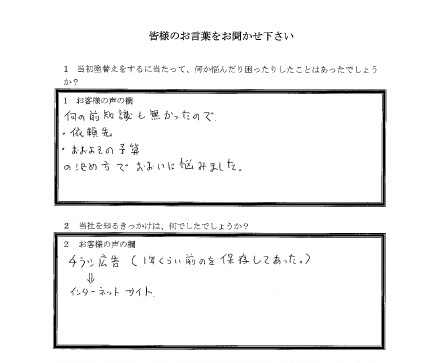 皆様のお言葉をお聞かせ下さい
1 当初塗替えをするに当たって、何か悩んだり困ったりしたことはあったでしょう
か？
1 お客様の声の欄
何の前知識も無かったので
・依頼先
・おおよその予算
の決め方でおおいに悩みました。
2 当社を知るきっかけは、何でしたでしょうか？
2 お客様の声の欄
チラシ広告（1年くらい前のを保存してあった。）
⇓
インターネットサイト